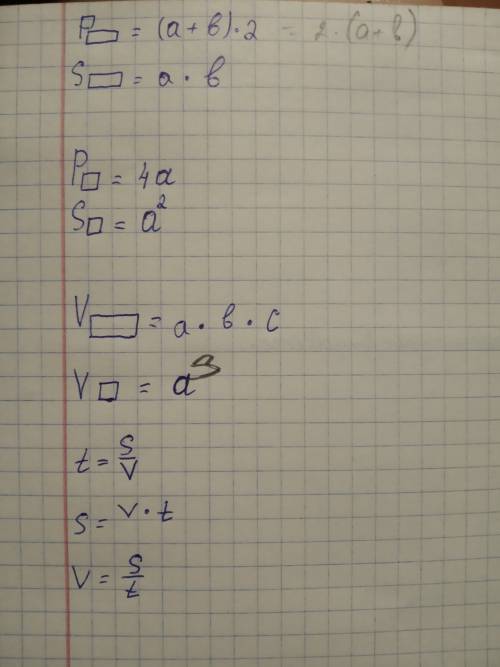 P▭ = (a + b) · 2 = 2 · (a+b)
S▭ = a · b
P□ = 4a
S□ = a²
V▭ = a · b · c
V□ = a³
t = s/v
s = v · t
v = s/t